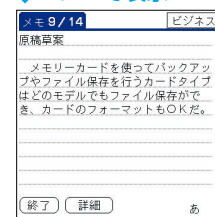 メモ 9/14 ビジネス
原稿草案
　メモリーカードを使ってバックアッ
プやファイル保存を行うカードタイプ
はどのモデルでもファイル保存がで
き、カードのフォーマットもOKだ。
終了 詳細 あ